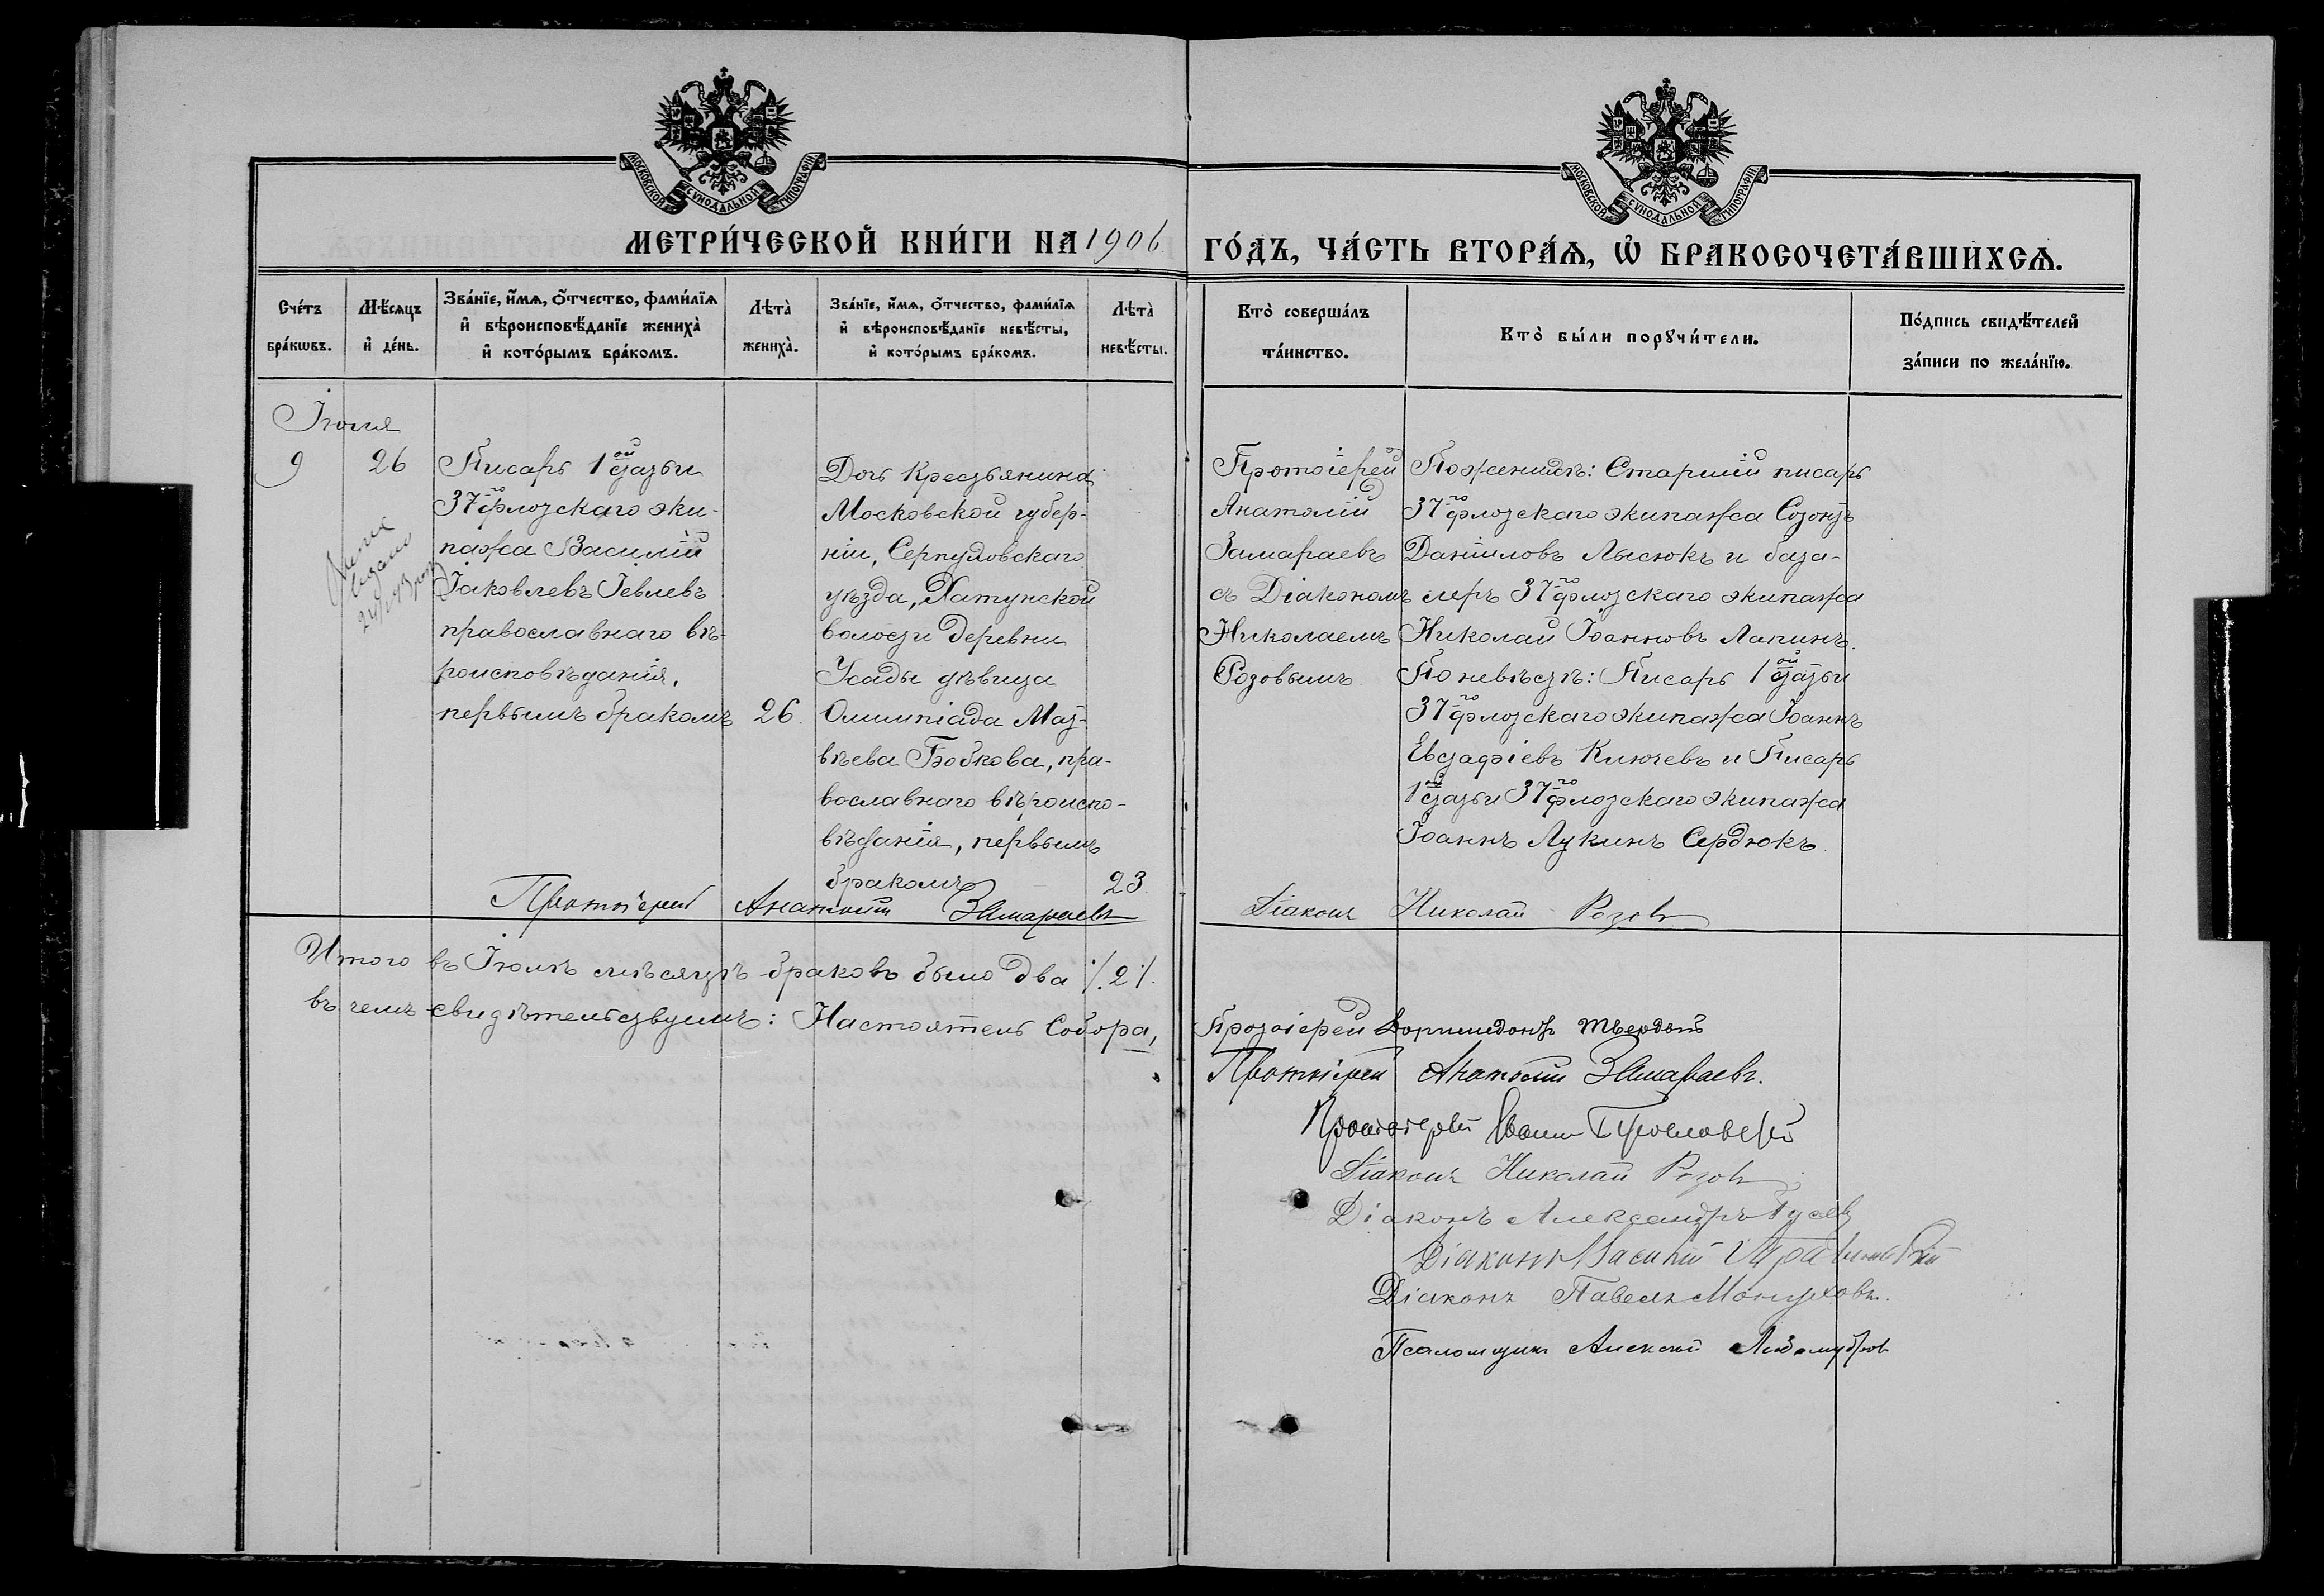 МОСКОВСКОЙ СѴНОДАЛЬНОЙ ТИПОГРАФІИ
МОСКОВСКОЙ СѴНОДАЛЬНОЙ ТИПОГРАФІИ
МЕТРИ́ЧЕСКОЙ КНИ́ГИ НА 1906 ГО́ДЪ, ЧА́СТЬ ВТОРА́Ѧ, Ѡ҆ БРАКОСОЧЕТА́ВШИХСѦ.
Сче́тъ бра́кѡвъ.
Мѣ́сѧцъ и҆ де́нь.
Зва́нїе, и҆́мѧ, о҆́тчество, фами́лїѧ
и҆ вѣроисповѣ́данїе жениха̀
и҆ кото́рымъ бра́комъ.
Лѣта̀ жениха̀.
Зва́нїе, и҆́мѧ, о҆́тчество, фами́лїѧ
и҆ вѣроисповѣ́данїе невѣ́сты,
и҆ кото́рымъ бра́комъ.
Лѣта̀ невѣ́сты.
Кто̀ соверша́лъ
та́инство.
Кто̀ бы́ли порꙋчи́тели.
По́дпись свидѣ́телей
за́писи по жела́нїю.
Іюля
9
26
Писарь 1ой статьи
37го флотскаго эки-
пажа Василій
Іаковлевъ Іевлевъ
православнаго вѣ-
роисповѣданія,
первымъ бракомъ
26.
Дочь Крестьянина
Московской губер-
ніи, Серпуховскаго
уѣзда, Хатунской
волости деревни
Усады дѣвица
Олимпіада Мат-
вѣева Бобкова, пра-
вославнаго вѣроиспо-
вѣданія, первымъ
бракомъ
23.
Протоіерей
Анатолій
Замараевъ
съ Діакономъ
Николаемъ
Розовымъ
По женихѣ: Старшій писарь
37го флотскаго экипажа Созонтъ
Даниловъ Лысюкъ и бата-
леръ 37го флотскаго экипажа
Николай Іоанновъ Лапинъ.
По невѣстѣ: Писарь 1ой статьи
37го флотскаго экипажа Іоаннъ
Евстафіевъ Ключевъ и Писарь
1ой статьи 37го флотскаго экипажа
Іоаннъ Лукинъ Сердюкъ.
Протоіерей Анатолій Замараевъ
Діаконъ Николай Розовъ
Итого въ Іюлѣ мѣсяцѣ браковъ было два /.2/.
въ чемъ свидѣтельствуемъ: Настоятель Собора,
Протоіерей
Протоіерей Анатолій Замараевъ.
Протоіерей
Діаконъ Николай Розовъ
Діаконъ Александръ Гусевъ
Діаконъ Василій
Діаконъ Павелъ
Псаломщикъ Алексій Любомудровъ